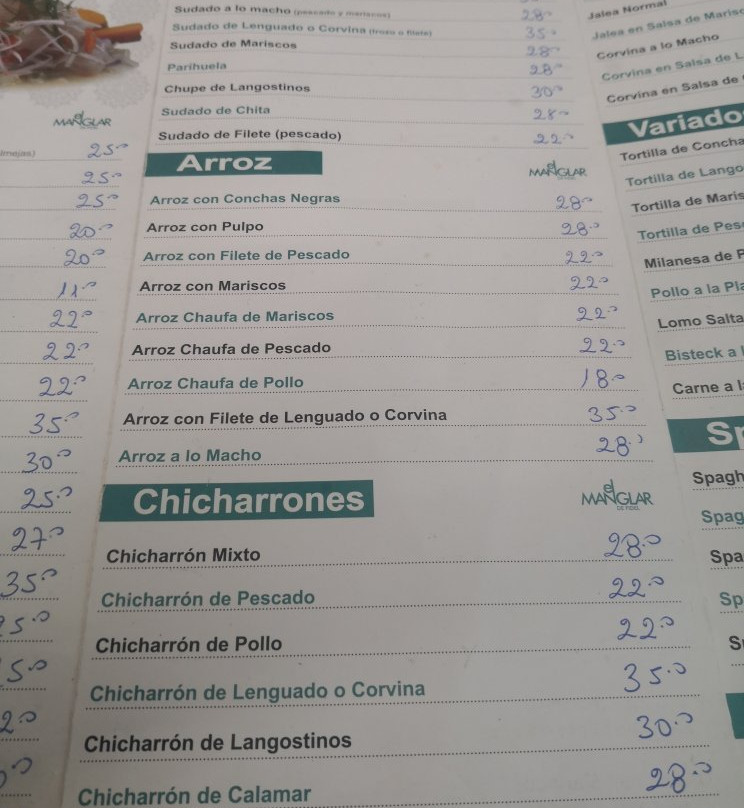 Sudado a lo macho (pescado y mariscos) 28.0
Sudado de Lenguado o Corvina (trozo o filete) 35.0
Sudado de Mariscos 28.0
Parihuela 28.0
Chupe de Langostinos 30.0
Sudado de Chita 28.0
Sudado de Filete (pescado) 22.0
Arroz
el MANGLAR
Arroz con Conchas Negras 28.0
Arroz con Pulpo 28.0
Arroz con Filete de Pescado 22.0
Arroz con Mariscos 22.0
Arroz Chaufa de Mariscos 22.0
Arroz Chaufa de Pescado 22.0
Arroz Chaufa de Pollo 18.0
Arroz con Filete de Lenguado o Corvina 35.0
Arroz a lo Macho 28.0
Chicharrones
el MANGLAR
DE FIDEL
Chicharrón Mixto 28.0
Chicharrón de Pescado 22.0
Chicharrón de Pollo 22.0
Chicharrón de Lenguado o Corvina 35.0
Chicharrón de Langostinos 30.0
Chicharrón de Calamar 28.0
el MANGLAR
25.0
25.0
25.0
20.0
20.0
11.0
22.0
22.0
22.0
35.0
30.0
25.0
27.0
35.0
5.0
5.0
Jalea Normal
Jalea en Salsa de Marisc
Corvina a lo Macho
Corvina en Salsa de L
Corvina en Salsa de
Variado
Tortilla de Concha
Tortilla de Lango
Tortilla de Maris
Tortilla de Pes
Milanesa de P
Pollo a la Pla
Lomo Salta
Bisteck a l
Carne a l
Sp
Spagh
Spag
Spa
Sp
S